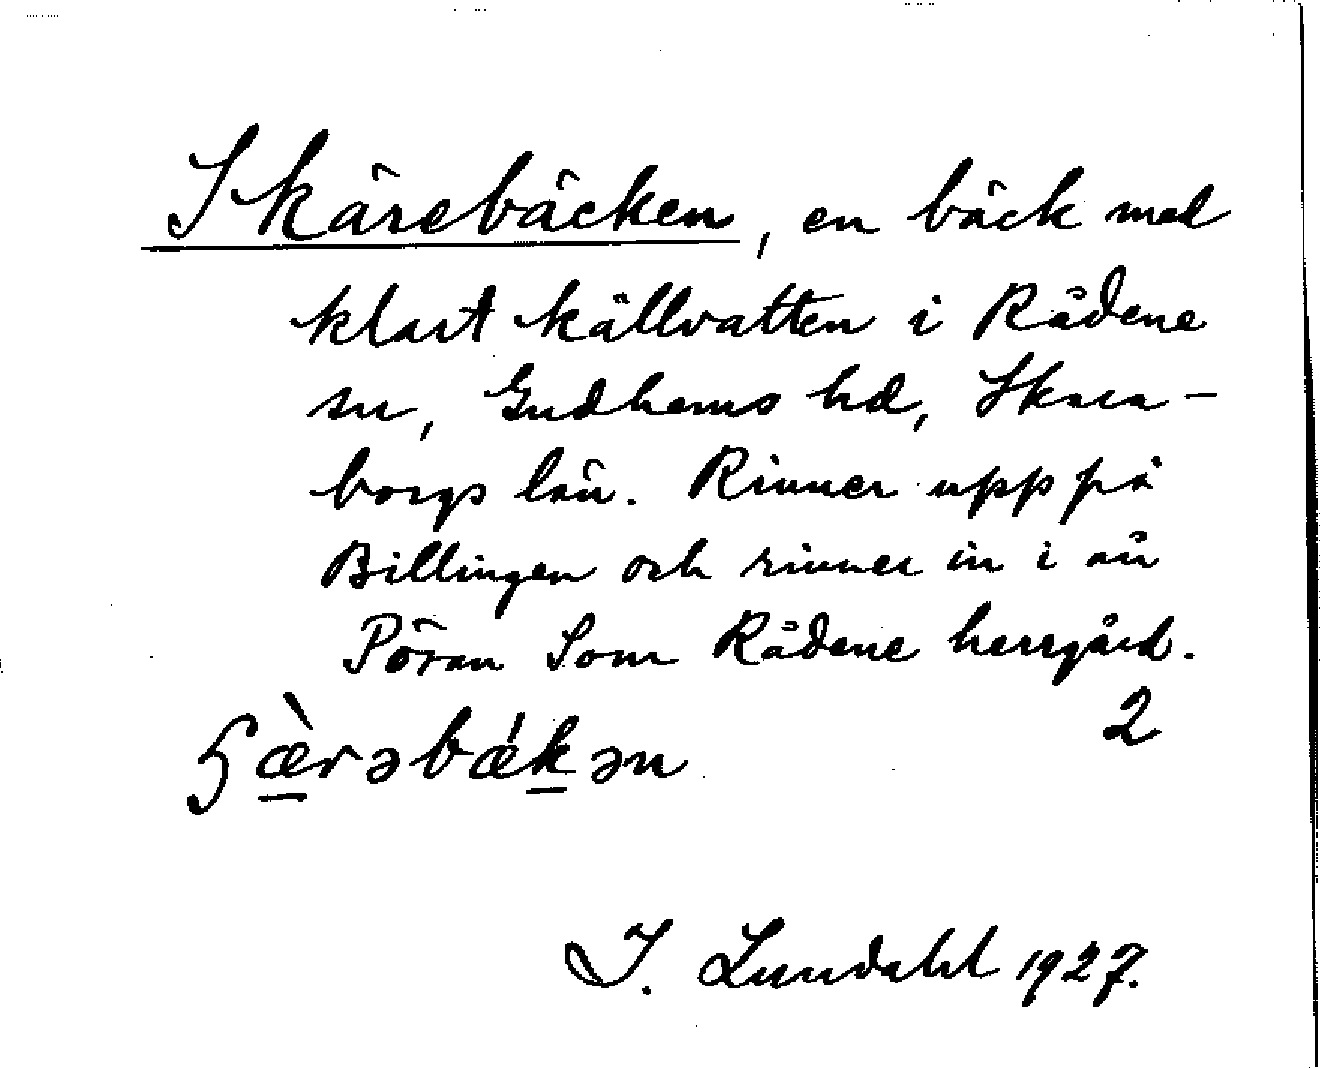 Skärebäcken, en bäck med
klart källvatten i Rådene
sn, Gudhems hd, Skara-
borgs län. Rinner upp på
Billingen och rinner in i ån
Pöran Som Rådene herrgård.
2
ɧæ̀rəbǽkən
I. Lundahl 1927.